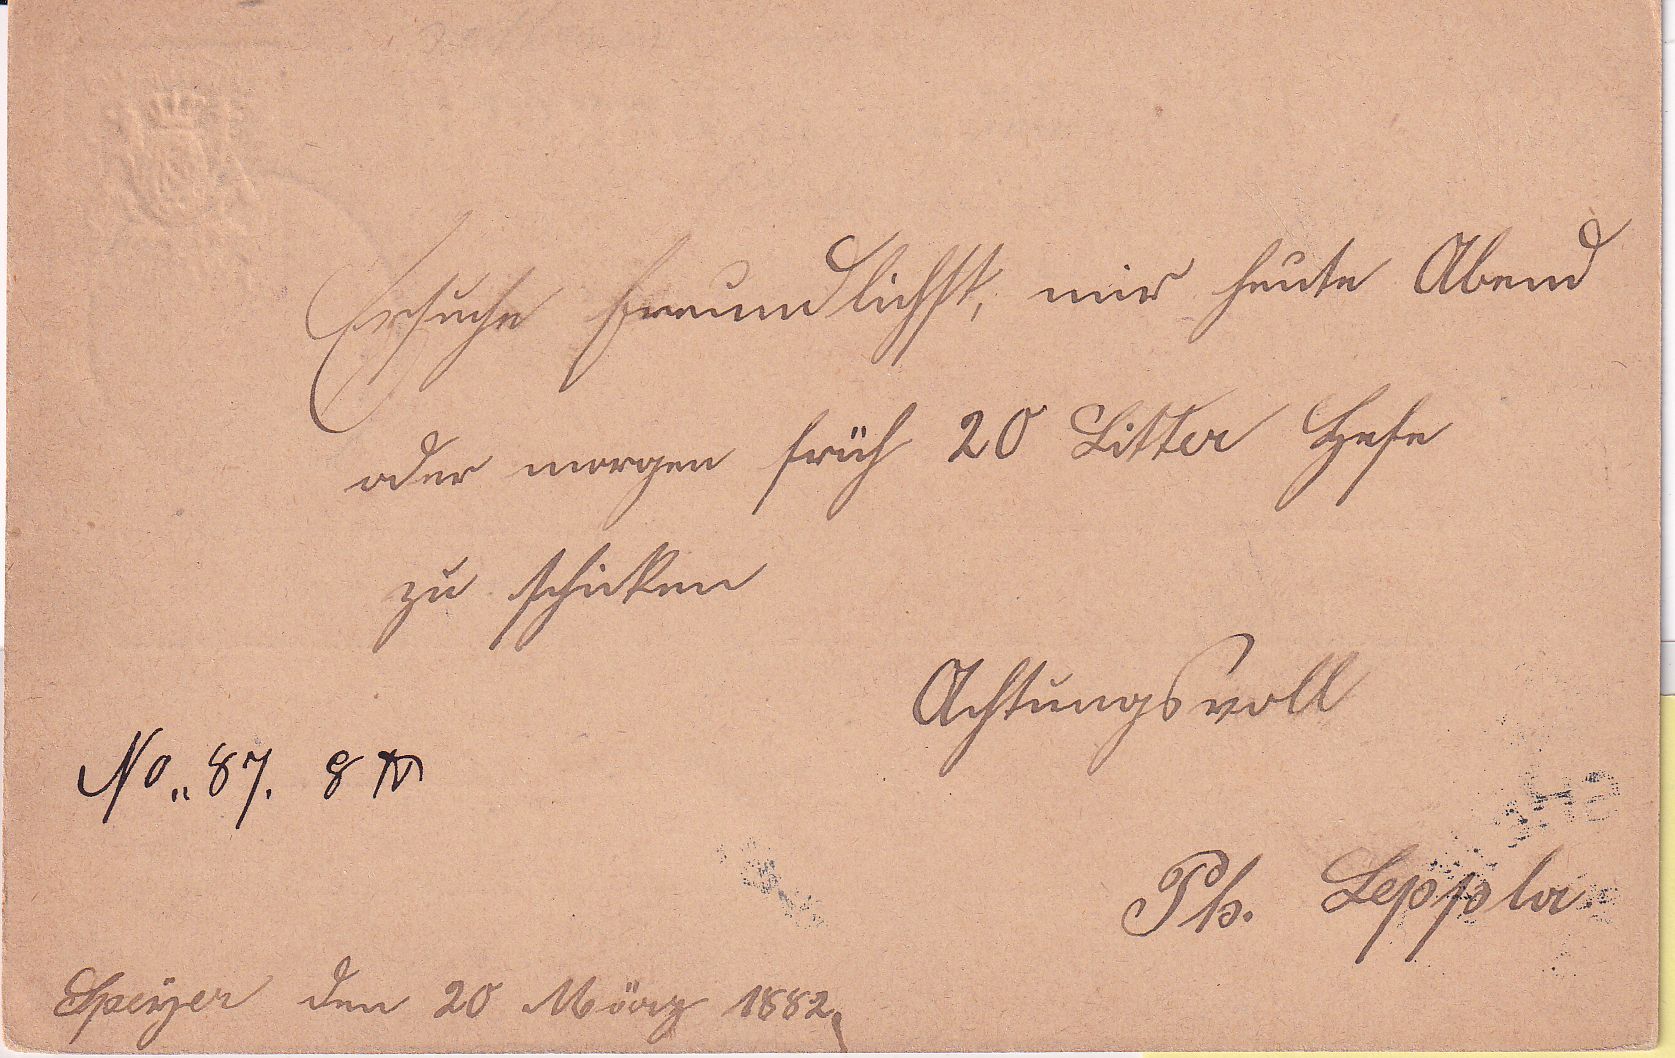 Ersuche freundlichst, mir heute Abend
oder morgen früh 20 Litter Hefe
zu schicken
Achtungsvoll
No. 87.
Ph. Leppla
Speÿer den 20 März 1882